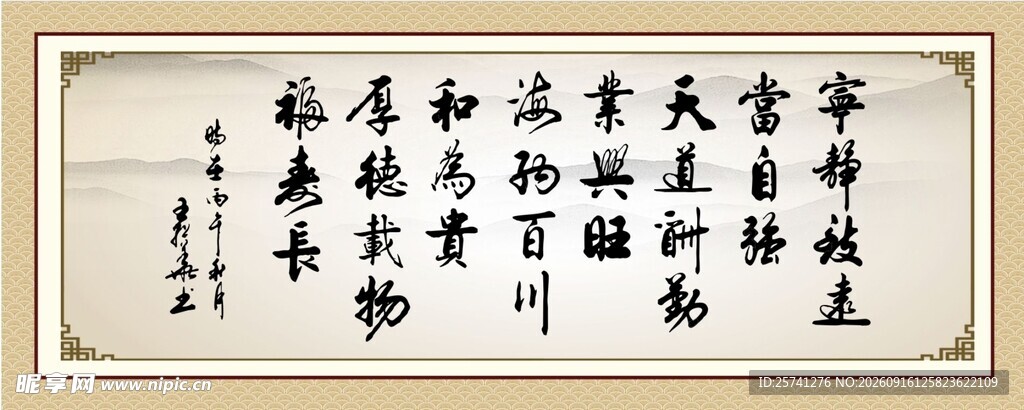 寧靜致遠
當自强
天道酬勤
業興旺
海納百川
和為貴
厚德載物
福壽長
時在丙午秋月
書
昵享网 www.nipic.cn
ID:25741276 NO:20260916125823622109